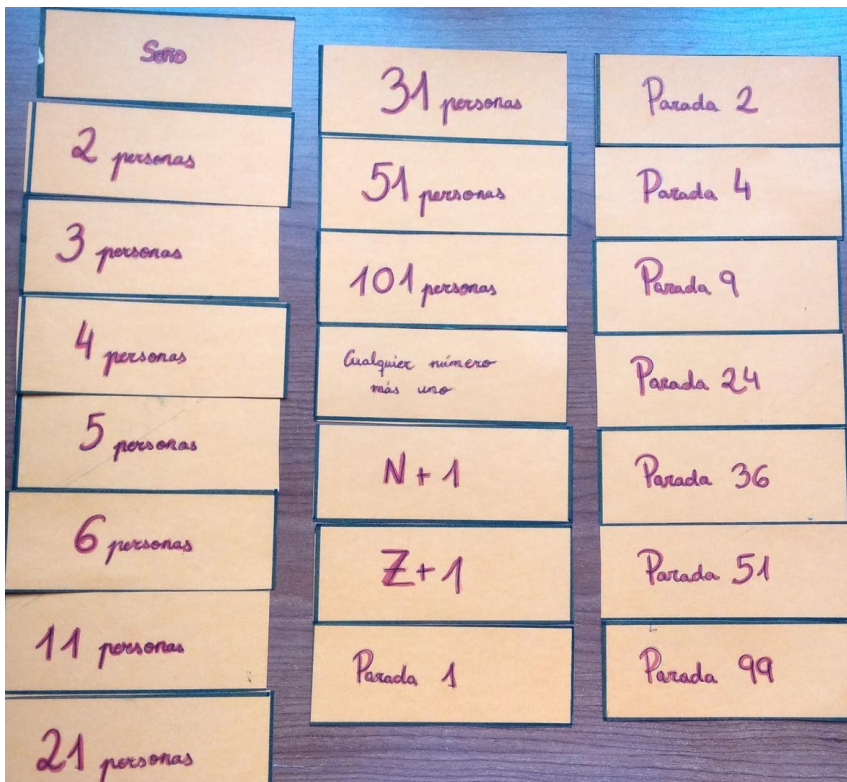 Seño
2 personas
3 personas
4 personas
5 personas
6 personas
11 personas
21 personas
31 personas
51 personas
101 personas
Cualquier número
más uno
N + 1
Z + 1
Parada 1
Parada 2
Parada 4
Parada 9
Parada 24
Parada 36
Parada 51
Parada 99